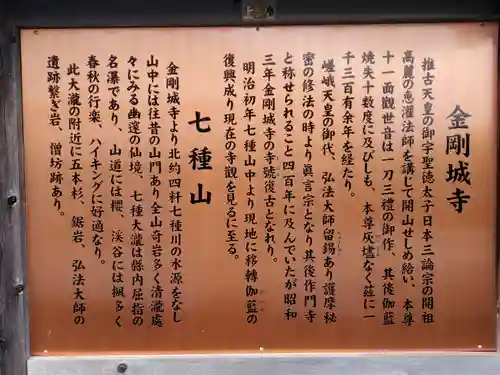 金剛城寺
推古天皇の御宇聖徳太子日本三論宗の開祖
高麗の恵灌法師を講じて開山せしめ給い、本尊
十一面觀世音は一刀三禮の御作、其後伽藍
焼失十数度に及びしも、本尊灰燼なく茲に一
千三百有余年を経たり。
嵯峨天皇の御代、弘法大師留錫あり護摩秘
密の修法の時より眞言宗となり其後作門寺
と称せられること四百年に及んでいたが昭和
三年金剛城寺の寺號復古となれり。
明治初年七種山中より現地に移轉伽藍の
復興成り現在の寺観を見るに至る。
七種山
金剛城寺より北約四粁七種川の水源をなし
山中には往昔の山門あり全山奇岩多く清瀧處
々にみる幽邃の仙境、七種大瀧は縣内屈指の
名瀑であり、山道には櫻、渓谷には楓多く
春秋の行楽、ハイキングに好適なり。
此大瀧の附近に五本杉、鋸岩、弘法大師の
遺跡繋ぎ岩、僧坊跡あり。